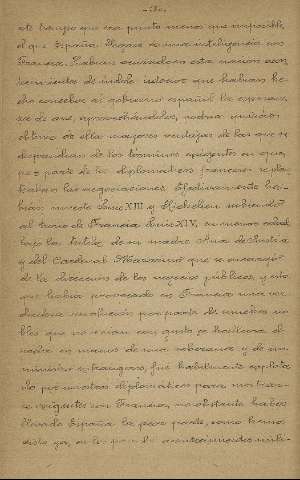 este tiempo que era punto menos que imposible
el que España llegara a una inteligencia con
Francia. Habían ocurrido en esta nación acon-
tecimientos de índole interior que habían he-
cho concebir al gobierno español la esperan-
za de que, aprovechándolos, podría quizás
obtener de ella mayores ventajas de las que se
desprendían de los términos exigentes en que,
por parte de los diplomáticos franceses se plan-
teaban las negociaciones. Efectivamente ha-
bían muerto Luis XIII y Richelieu subiendo
al trono de Francia Luis XIV, en menor edad
bajo la tutela de su madre Ana de Austria
y del Cardenal Mazarino que se encargó
de la dirección de los negocios públicos, y esto
que había provocado en Francia una ver-
dadera revolución por parte de muchos no-
bles que no veían con gusto se hallara el
poder en manos de una soberana y de un
ministro extranjeros, fué hábilmente explota-
do por nuestros diplomáticos para mostrar-
se exigentes con Francia, no obstante haber
llevado España la peor parte, como hemos
dicho ya, en los por los acontecimientos mili-